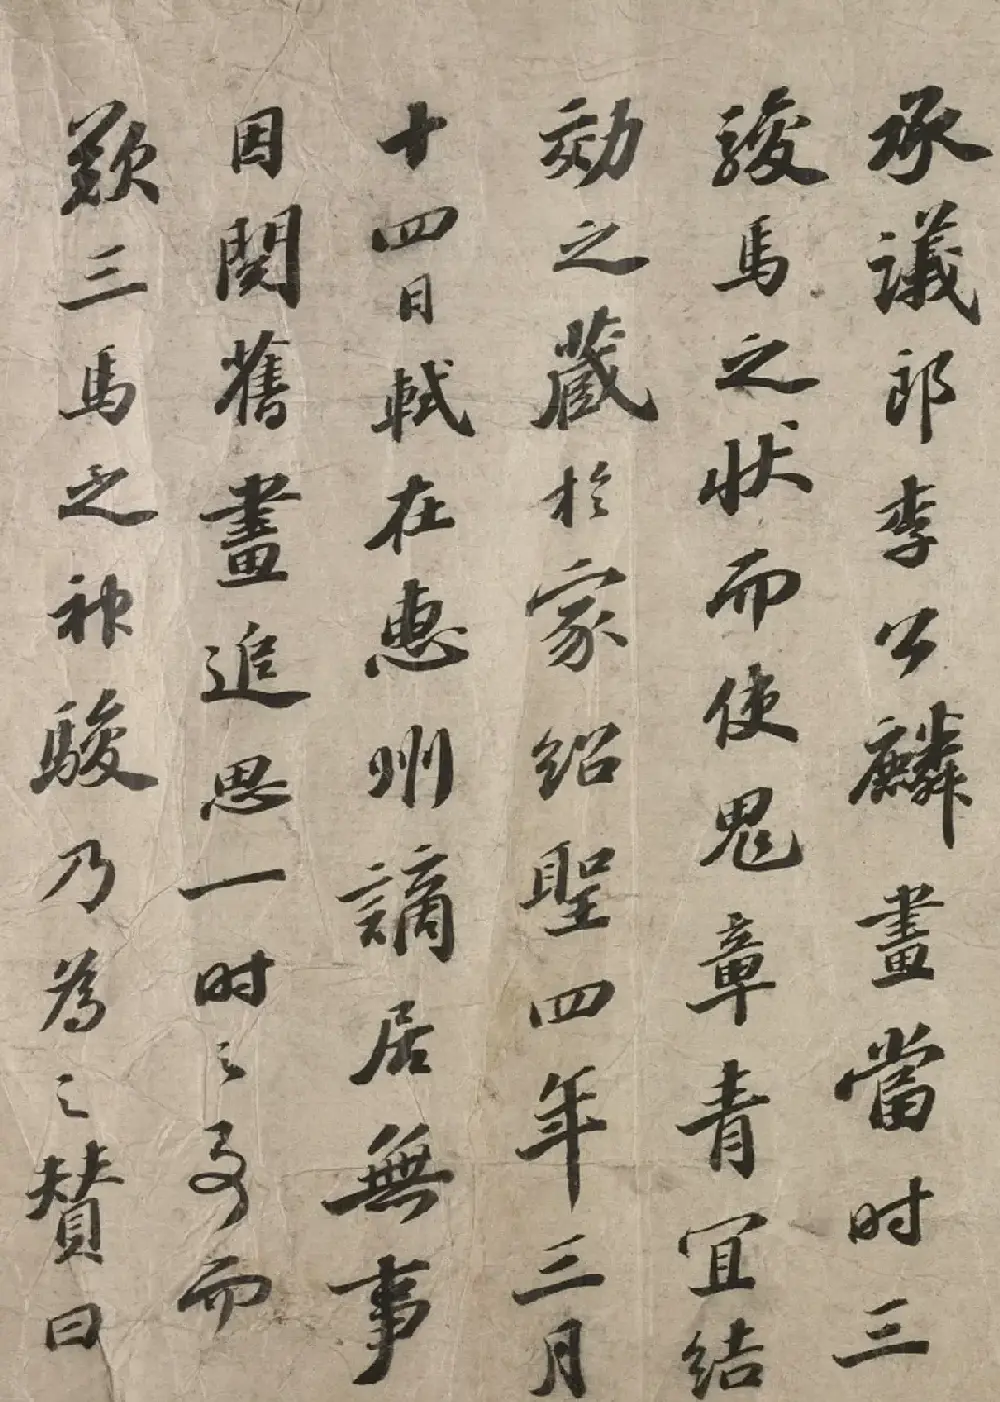 承議郎李公麟畫當时三
駿馬之状而使鬼章青宜结
効之藏於家紹聖四年三月
十四日軾在惠州謫居無事
因閱舊畫追思一时之事而
歎三馬之神駿乃為之贊曰